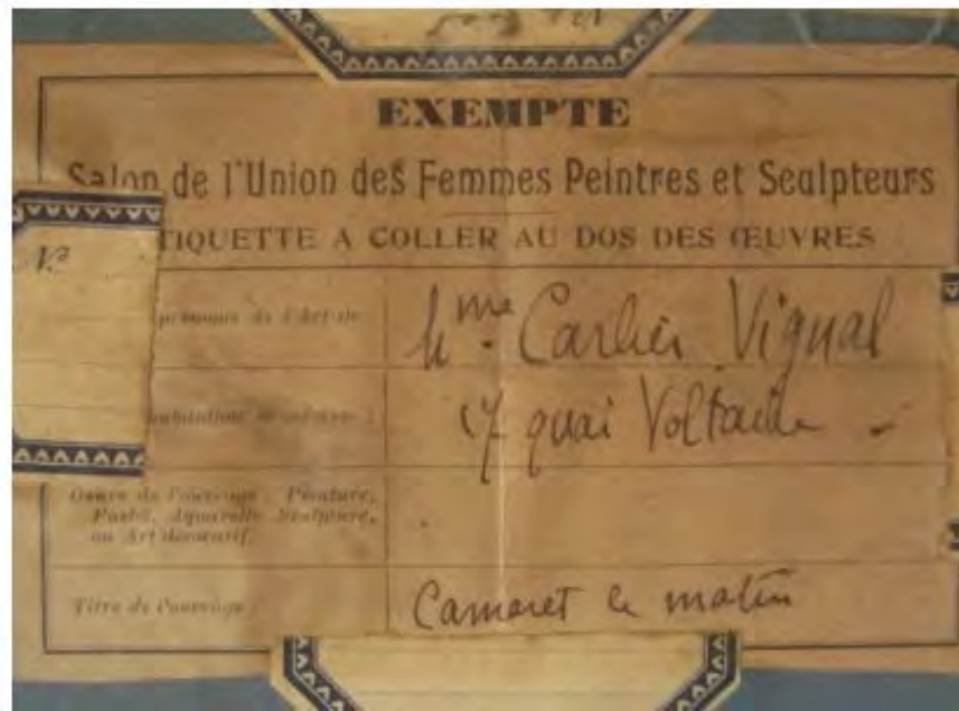 EXEMPTE
Salon de l'Union des Femmes Peintres et Sculpteurs
TIQUETTE A COLLER AU DOS DES ŒUVRES
Nº
prénoms de l'Art
Mme Carlier Vignal
17 quai Voltaire -
Genre de l'ouvrage : Peinture,
Pastel, Aquarelle Sculpture,
ou Art décoratif.
Titre de l'ouvrage :
Camaret le matin